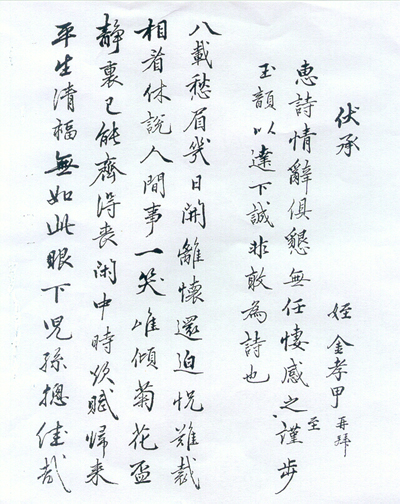 伏承 姪 金孝甲 再拜
恵詩情辭俱懇無任悽感之至謹步
玉韻以達下誠非敢為詩也
八載愁眉幾日開離懷還迫怳難裁
相看休說人間事一笑唯傾菊花盃
靜裏已能齊得喪閑中時復賦歸来
平生清福無如此眼下児孫摠佳哉